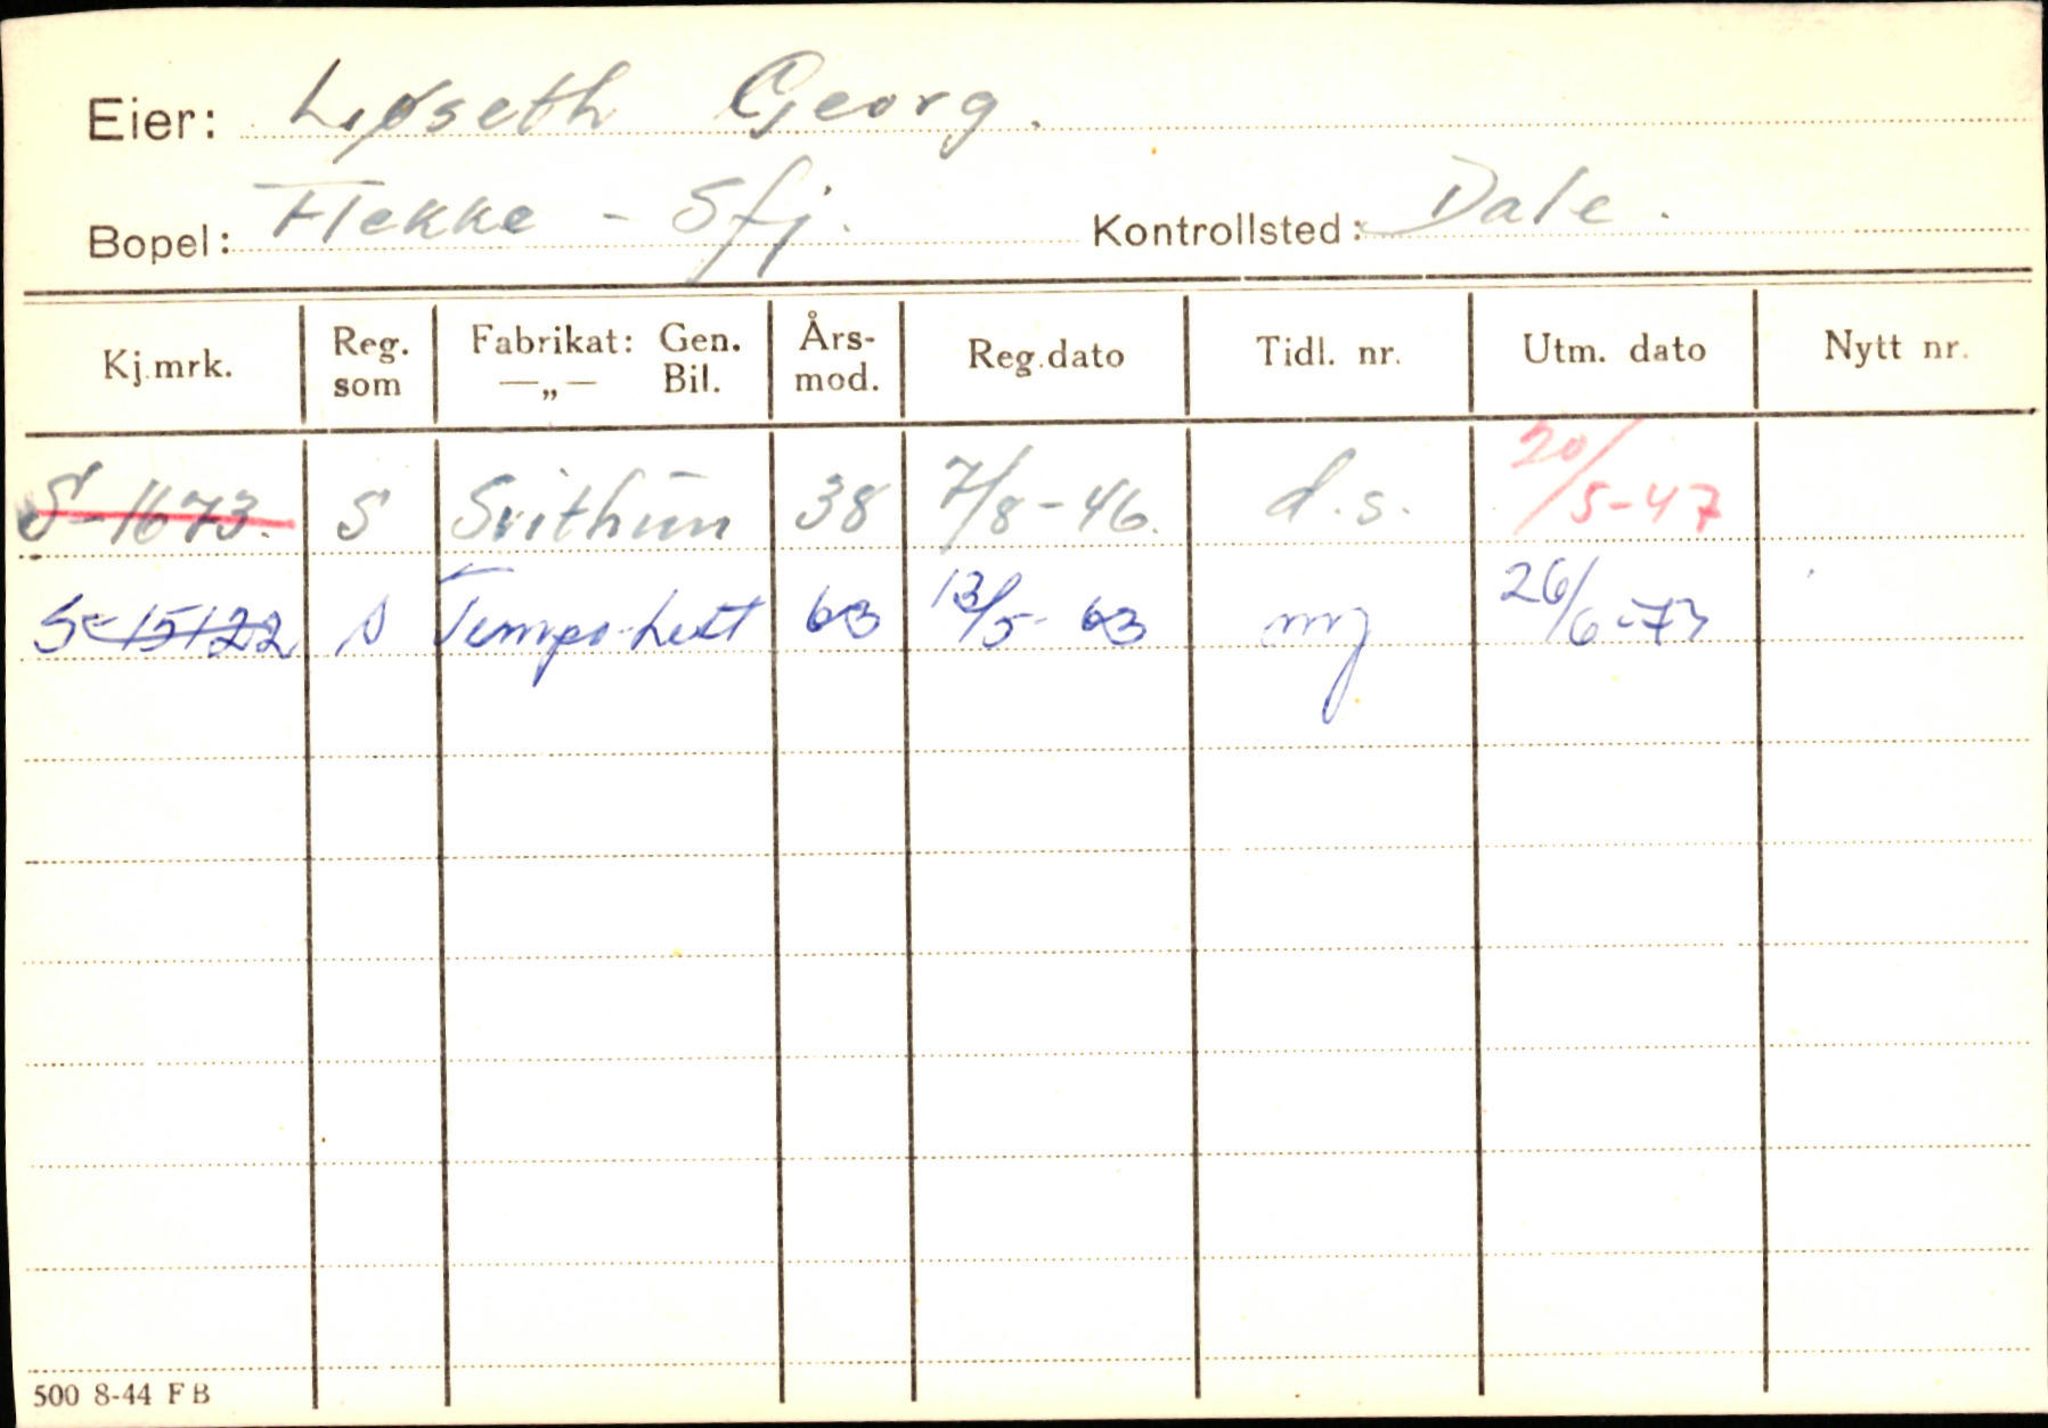 Eier: Løseth Georg.
Bopel: Flekke - Sfj. Kontrollsted: Dale.
Kj.mrk. Reg. som Fabrikat: Gen. —„— Bil. Års- mod. Reg.dato Tidl. nr. Utm. dato Nytt nr.
S-1673. S Svithun 38 7/8-46. d.s. 20/5-47
S-15122 S Tempo Lett 63 13/5-63 ny 26/6-73
500 8-44 FB